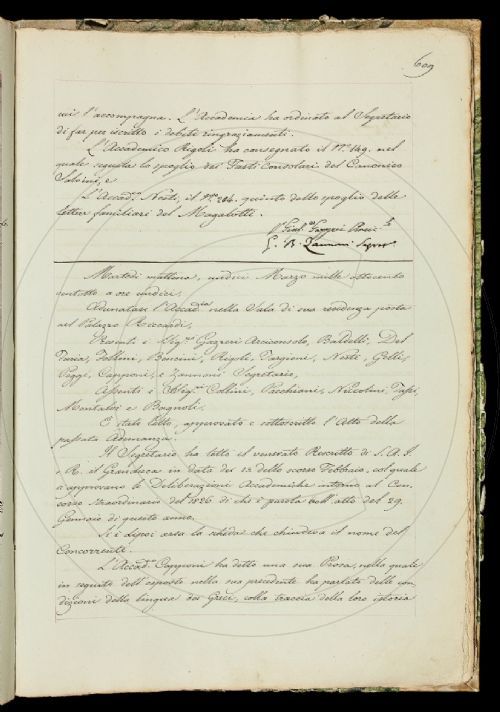 609
cui l'accompagna. L'Accademia ha ordinato al Segretario
di far per iscritto i debiti ringraziamenti.
L'Accademico Rigoli ha consegnato il N.° 149. nel
quale seguita lo spoglio dei Fasti Consolari del Canonico
Salvini, e
L'Accad.° Nesti, il N.° 214. quinto dello spoglio delle
lettere familiari del Magalotti.
G. B. Zannoni Segret.°
Martedì mattina, undici Marzo mille ottocento
ventotto a ore undici.
Adunatasi l'Accad.mia nella Sala di sua residenza posta
nel Palazzo Riccardi,
Presenti i Sig.ri Gazzeri Arciconsolo, Baldelli, Del
Furia, Follini, Bencini, Rigoli, Targioni, Nesti, Gelli,
Poggi, Capponi, e Zannoni Segretario,
Assenti i Sig.ri Collini, Pacchiani, Niccolini, Tassi,
Montalvi e Bagnoli,
È stato letto, approvato e sottoscritto l'Atto della
passata Adunanza.
Il Segretario ha letto il venerato Rescritto di S. A. I.
e R. il Granduca in data dei 13 dello scorso Febbraio, col quale
si approvano le Deliberazioni Accademiche intorno al Con-
corso straordinario del 1826 di che è parola nell'atto del 29.
Gennaio di questo anno.
Si è dipoi arsa la scheda che chiudeva il nome del
Concorrente.
L'Accad.° Capponi ha detto una sua Prosa, nella quale
in seguito dell'esposto nella sua precedente ha parlato delle con-
dizioni della lingua dei Greci, colla traccia della loro istoria